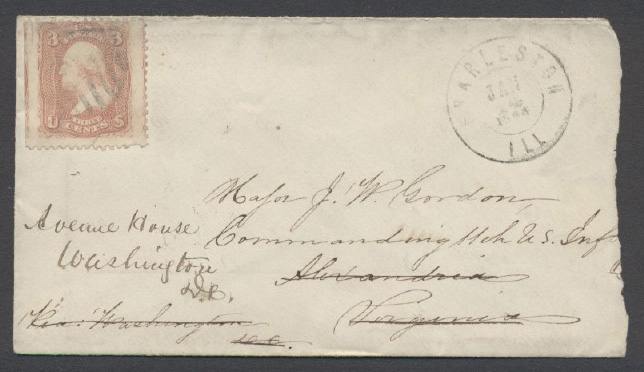 3 3
U THREE CENTS S
CHARLESTON
JAN
ILL
Major J. W. Gordon
Commanding 11th U.S. Inf
Alexandria
Virginia
Avenue House
Washington
D.C.
Via: Washington
D.C.